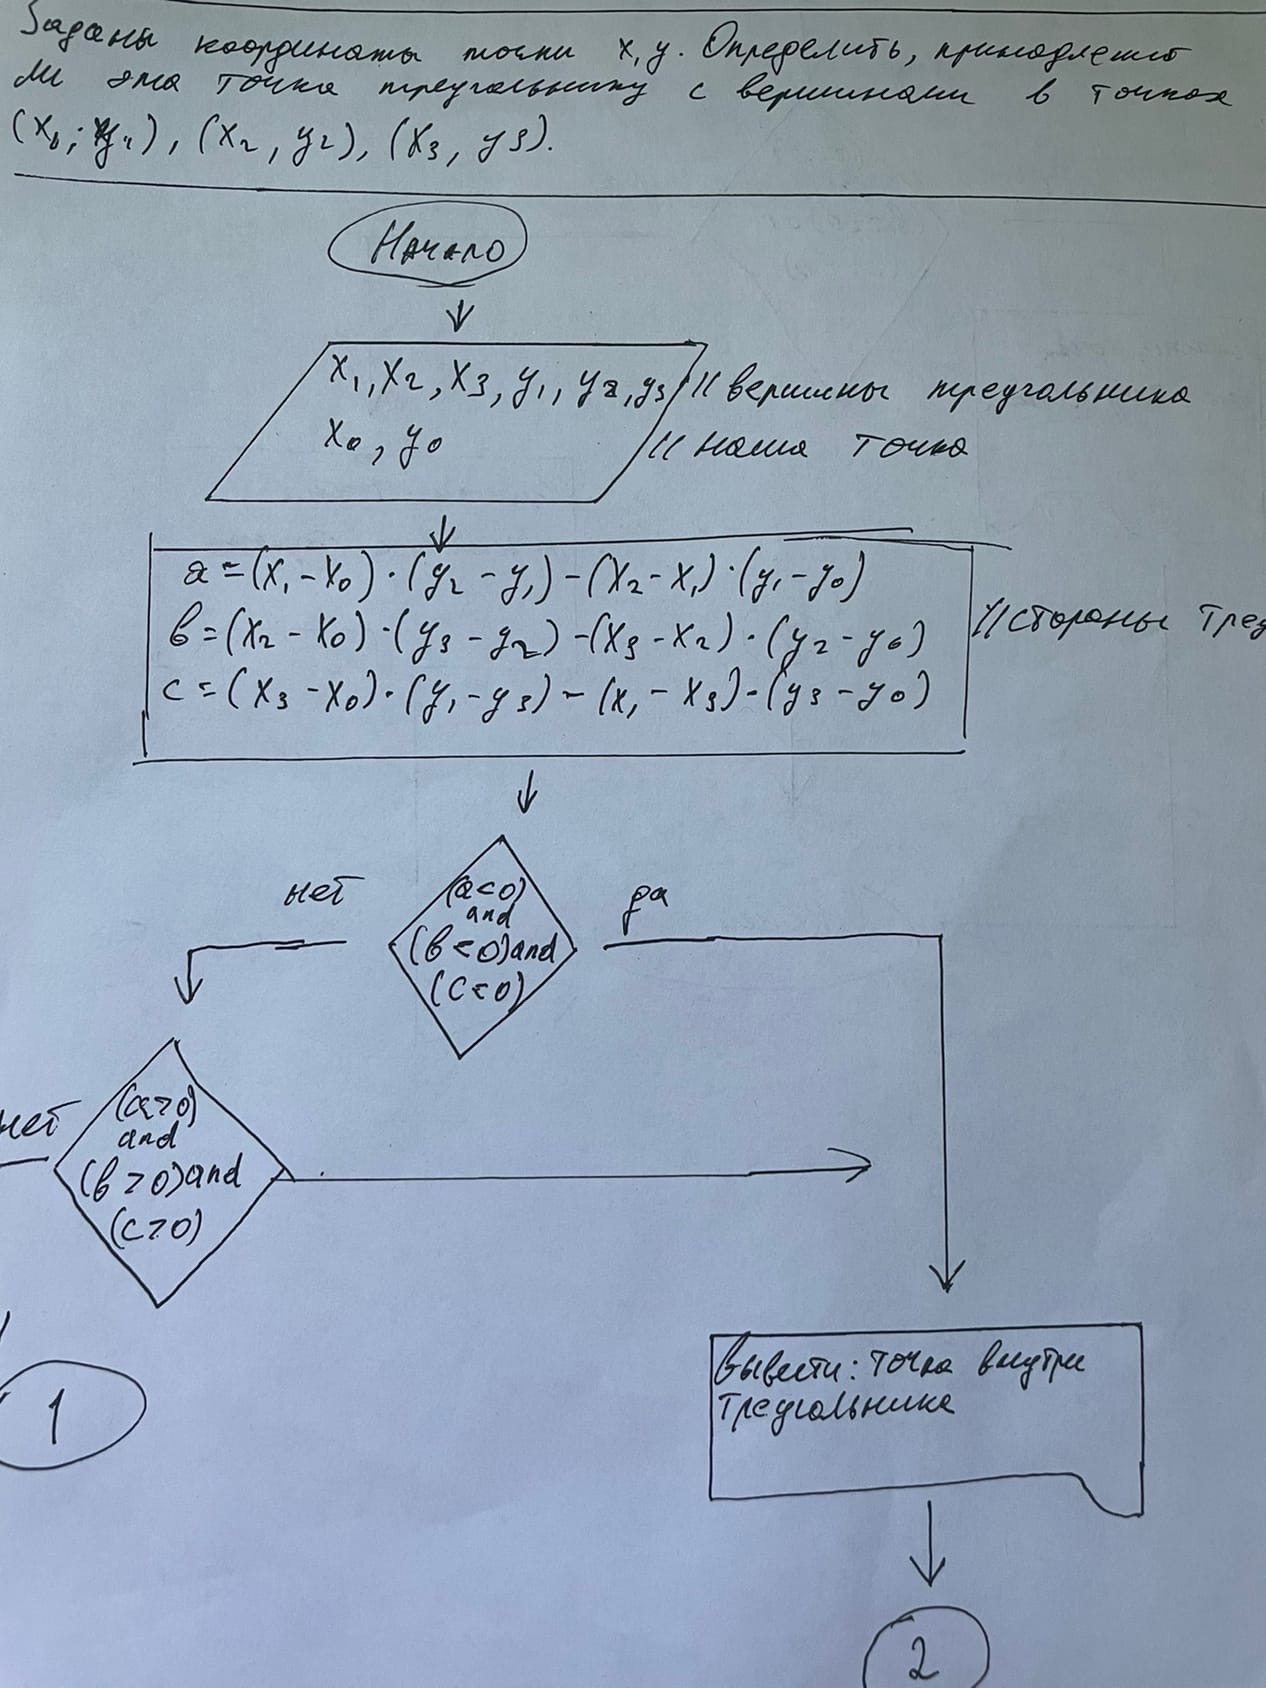 Заданы координаты точки x, y. Определить, принадлежит
ли эта точка треугольнику с вершинами в точках
(x₁; y₁), (x₂, y₂), (x₃, y₃).
Начало
x₁, x₂, x₃, y₁, y₂, y₃ // вершины треугольника
x₀, y₀ // наша точка
a = (x₁ - x₀) · (y₂ - y₁) - (x₂ - x₁) · (y₁ - y₀)
в = (x₂ - x₀) · (y₃ - y₂) - (x₃ - x₂) · (y₂ - y₀) // стороны треу
c = (x₃ - x₀) · (y₁ - y₃) - (x₁ - x₃) · (y₃ - y₀)
нет
(a < 0)
and
(в < 0) and
(c < 0)
да
нет
(a > 0)
and
(в > 0) and
(c > 0)
1
Вывести: точка внутри
треугольника
2